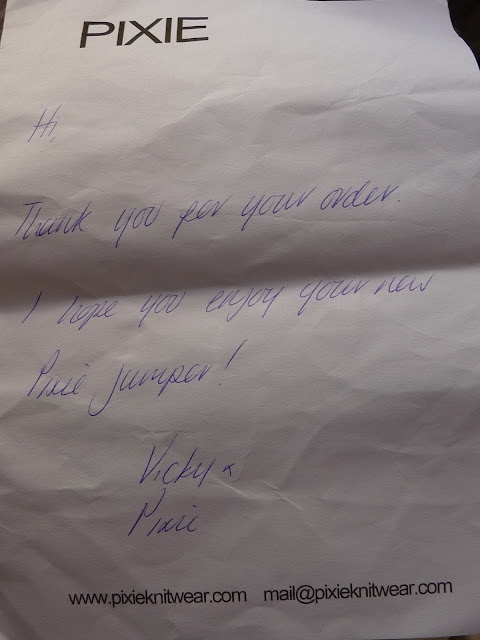 PIXIE
Hi,
Thank you for your order.
I hope you enjoy your new
Pixie jumper!
Vicky x
Pixie
www.pixieknitwear.com mail@pixieknitwear.com